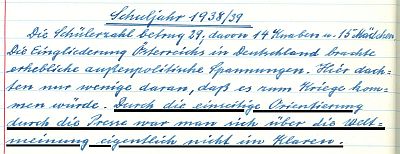 Schuljahr 1938/39
Die Schülerzahl betrug 29, davon 14 Knaben u. 15 Mädchen.
Die Eingliederung Österreichs in Deutschland brachte
erhebliche außenpolitische Spannungen. Hier dach-
ten nur wenige daran, daß es zum Kriege kom-
men würde. Durch die einseitige Orientierung
durch die Presse war man sich über die Welt-
meinung eigentlich nicht im Klaren.